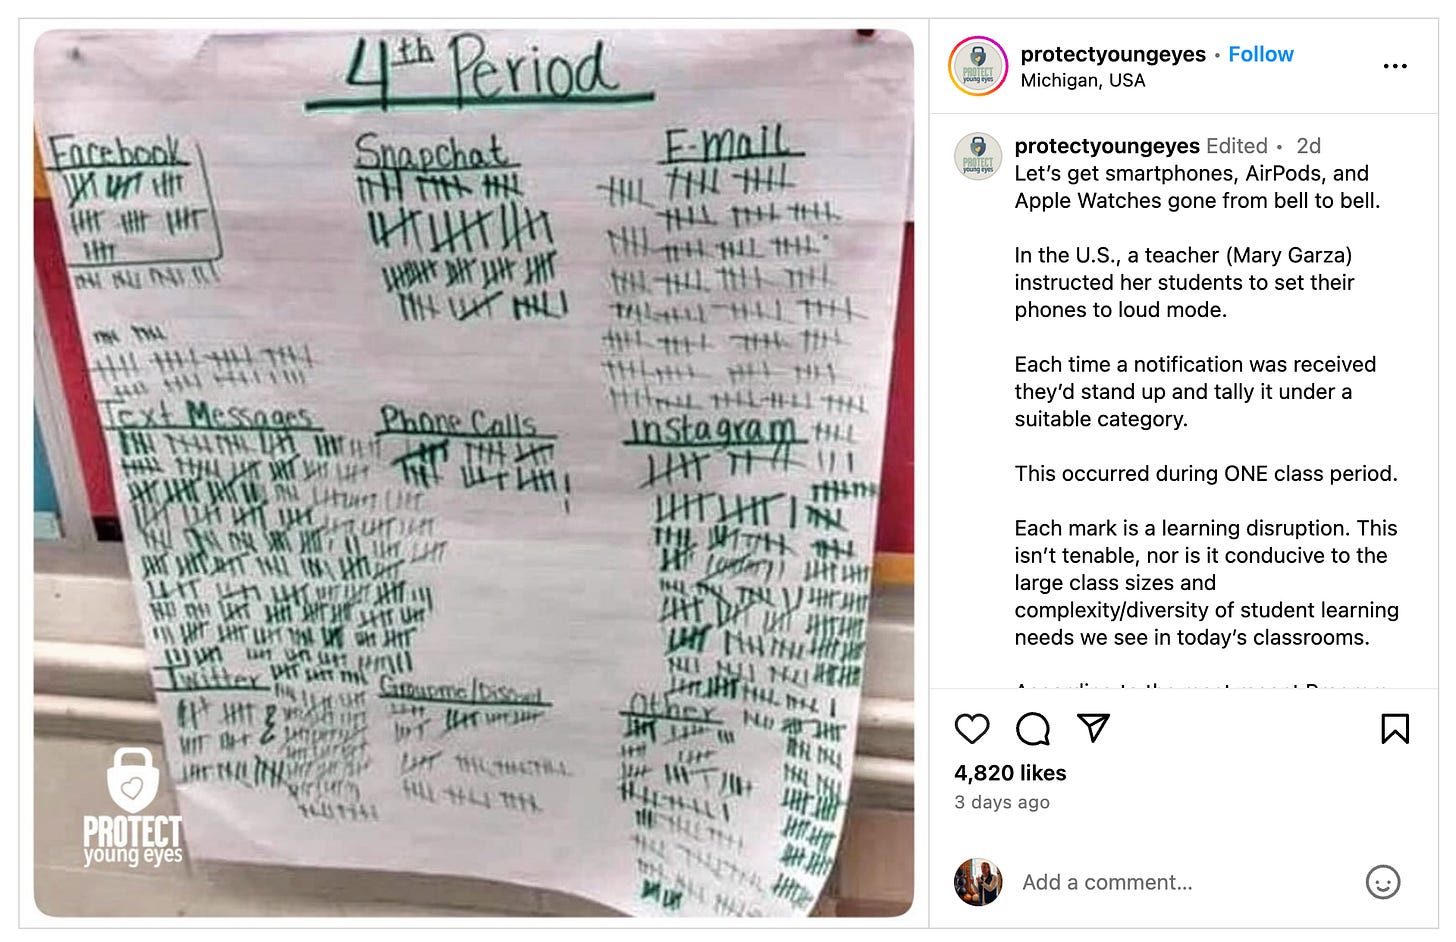 4th Period
Facebook
Snapchat
E-mail
Text Messages
Phone Calls
Instagram
Twitter
Groupme/Discord
Other
PROTECT
young eyes
PROTECT
young eyes
protectyoungeyes • Follow
Michigan, USA
protectyoungeyes Edited • 2d
Let's get smartphones, AirPods, and
Apple Watches gone from bell to bell.
In the U.S., a teacher (Mary Garza)
instructed her students to set their
phones to loud mode.
Each time a notification was received
they'd stand up and tally it under a
suitable category.
This occurred during ONE class period.
Each mark is a learning disruption. This
isn't tenable, nor is it conducive to the
large class sizes and
complexity/diversity of student learning
needs we see in today's classrooms.
4,820 likes
3 days ago
Add a comment...